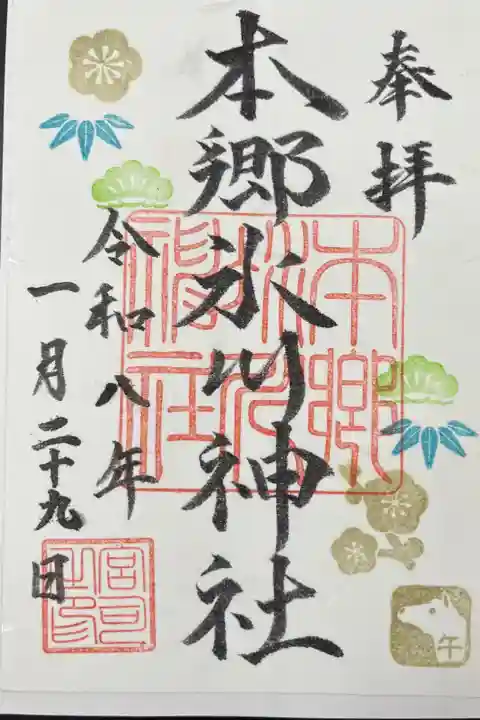 奉拝
本郷氷川神社
令和八年
一月二十九日
本郷氷川神社
宮司之印
午